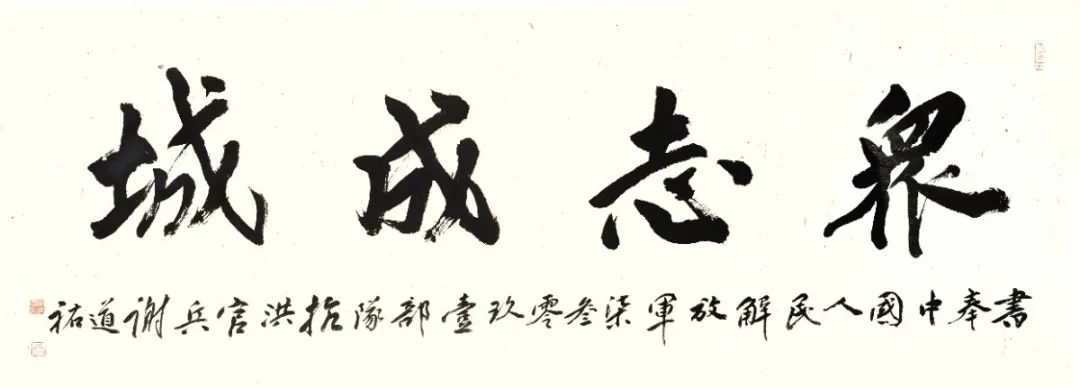 眾志成城
書奉中國人民解放軍柒叁零玖壹部隊抗洪官兵謝道祐